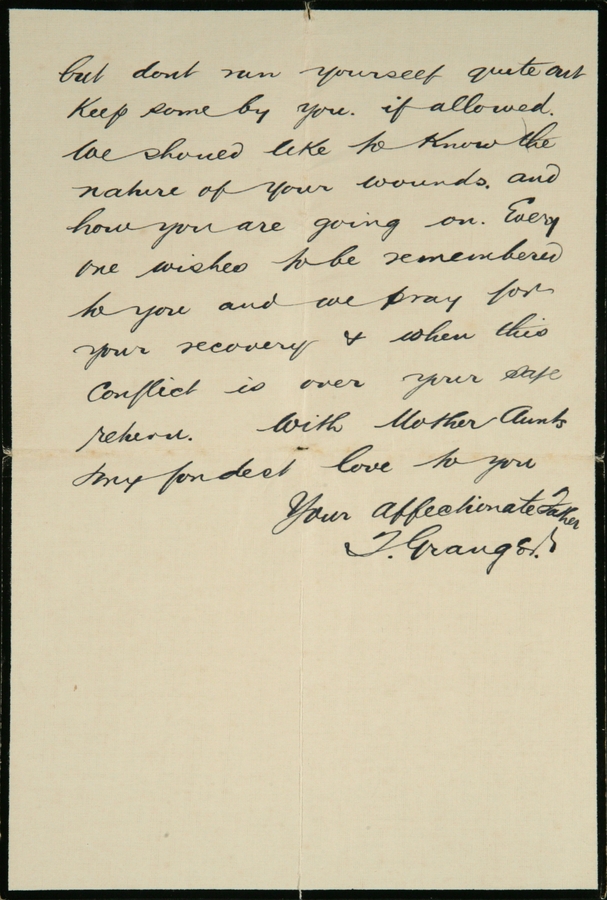 but dont run yourself quite out
Keep some by you. if allowed.
We should like to know the
nature of your wounds. and
how you are going on. Every
one wishes to be remembered
to you and we pray for
your recovery & when this
Conflict is over your safe
return. With Mother Aunts
& my fondest love to you
Your affectionate Father
T. Granger.